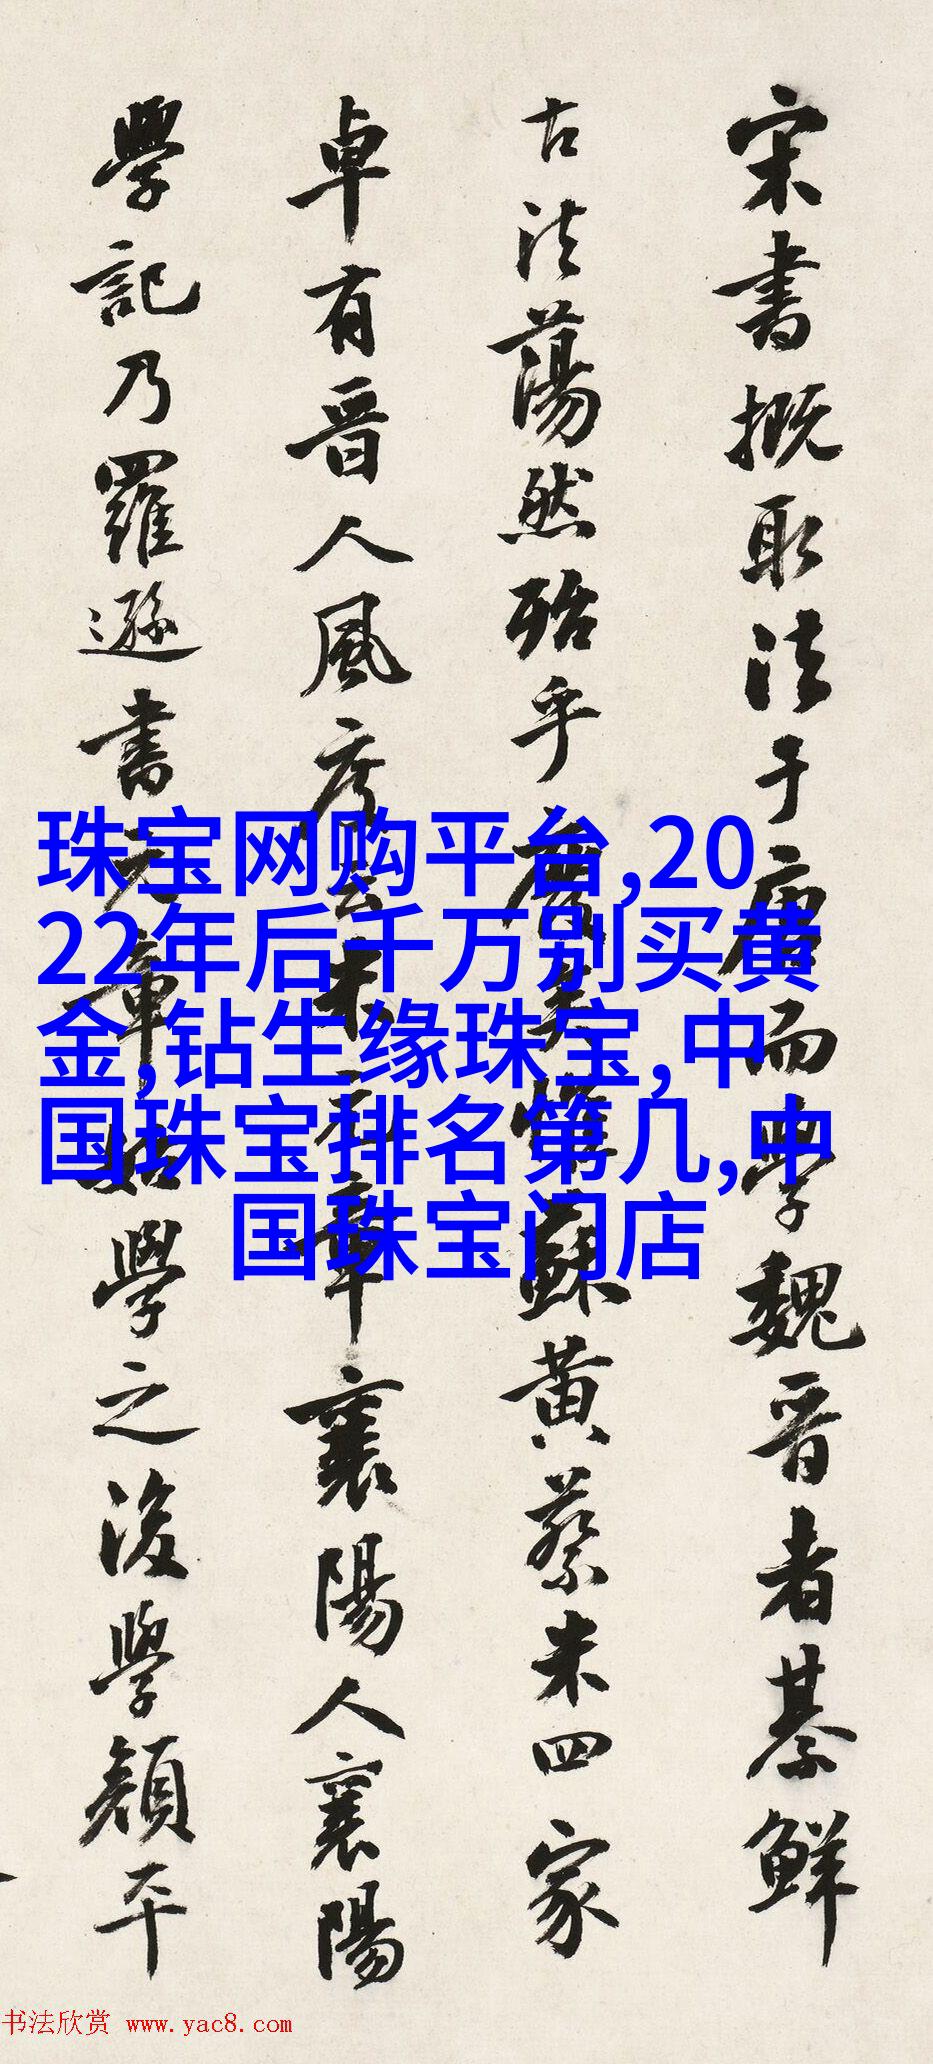 宋書概取法于唐而學魏晋者綦鮮
古法蕩然殆乎廢矣惟蘇黄蔡米四家
卓有晋人風度云米元章襄陽人襄陽
學記乃羅遜書元章始學之後學顔平
珠宝网购平台,20
22年后千万别买黄
金,钻生缘珠宝,中
国珠宝排名第几,中
国珠宝门店
书法欣赏 www.yac8.com